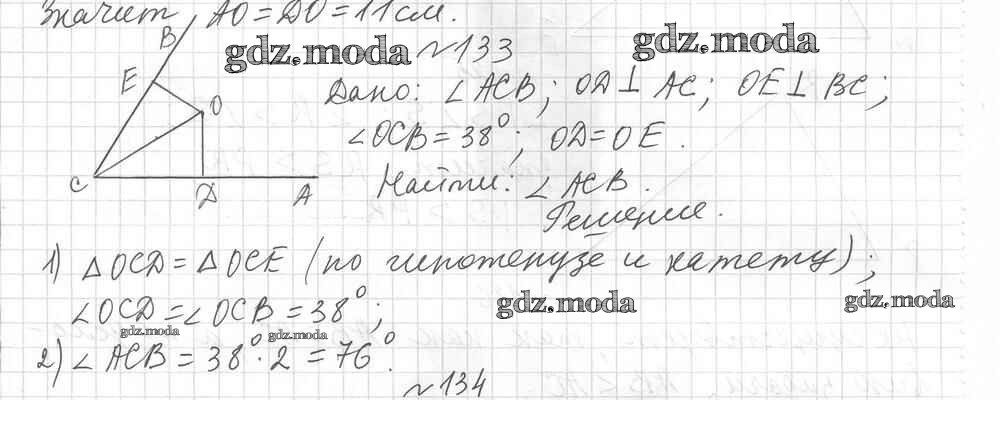 Значит, AO = DO = 11 см.
B
gdz.moda
№133
gdz.moda
E
O
C
D
A
Дано: ∠ACB; OD⊥AC; OE⊥BC;
∠OCB = 38°; OD = OE.
Найти: ∠ACB.
Решение.
1) △OCD = △OCE (по гипотенузе и катету);
∠OCD = ∠OCB = 38°;
gdz.moda
gdz.moda
gdz.moda
gdz.moda
2) ∠ACB = 38° · 2 = 76°.
№134